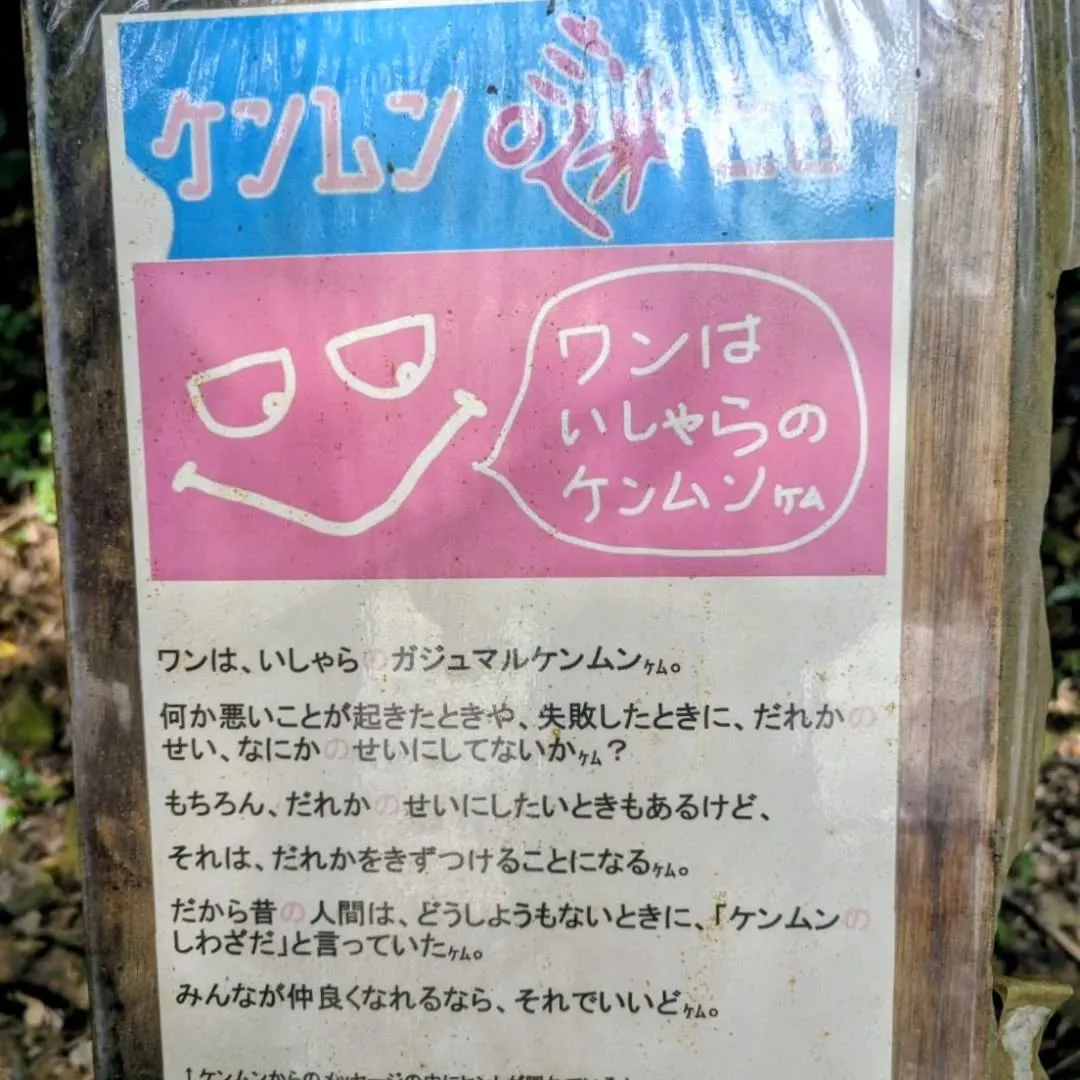 ケンムン
ワンは
いしゃらの
ケンムンケム
ワンは、いしゃらのガジュマルケンムンケム。
何か悪いことが起きたときや、失敗したときに、だれかの
せい、なにかのせいにしてないかケム？
もちろん、だれかのせいにしたいときもあるけど、
それは、だれかをきずつけることになるケム。
だから昔の人間は、どうしようもないときに、「ケンムンの
しわざだ」と言っていたケム。
みんなが仲良くなれるなら、それでいいどケム。
↑ケンムンからのメッセージの中にヒントが隠れているよ